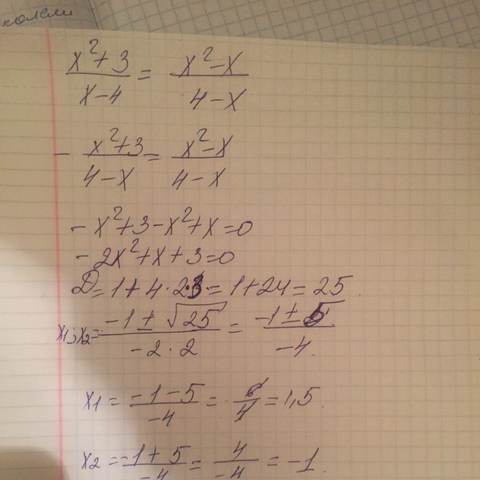 x²+3/x-4 = x²-x/4-x
- x²+3/4-x = x²-x/4-x
-x²+3-x²+x=0
-2x²+x+3=0
D=1+4·2·3=1+24=25
x₁;x₂= -1±√25/-2·2 = -1±5/-4.
x1 = -1-5/-4 = 6/4 = 1,5.
x2 = -1+5/-4 = 4/-4 = -1.